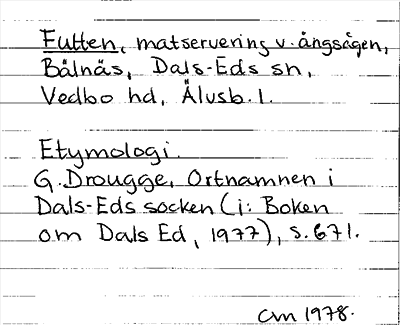 Futten, matservering v. ångsågen,
Bälnäs, Dals-Eds sn,
Vedbo hd, Älvsb. l.
Etymologi.
G. Drougge, Ortnamnen i
Dals-Eds socken (i: Boken
om Dals Ed, 1977), s. 671.
CM 1978.